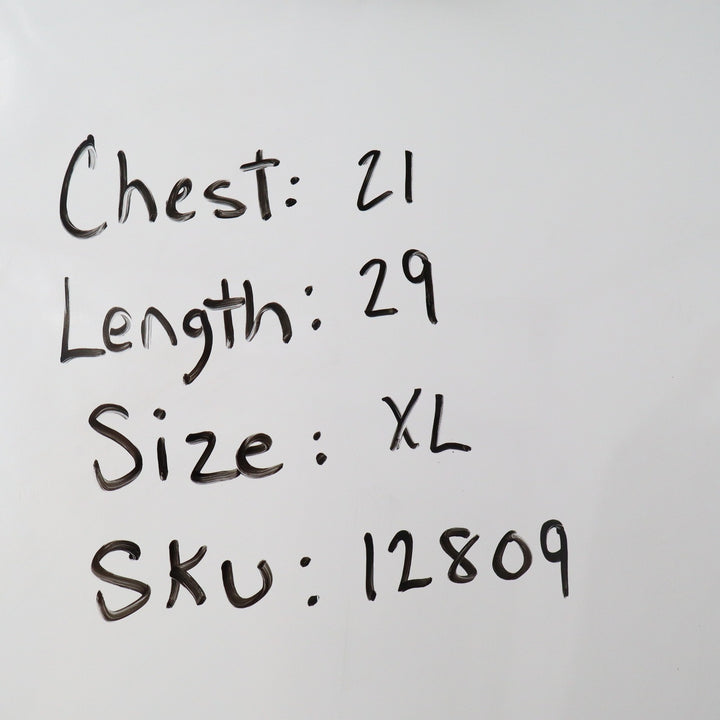 Chest: 21
Length: 29
Size: XL
SKU: 12809